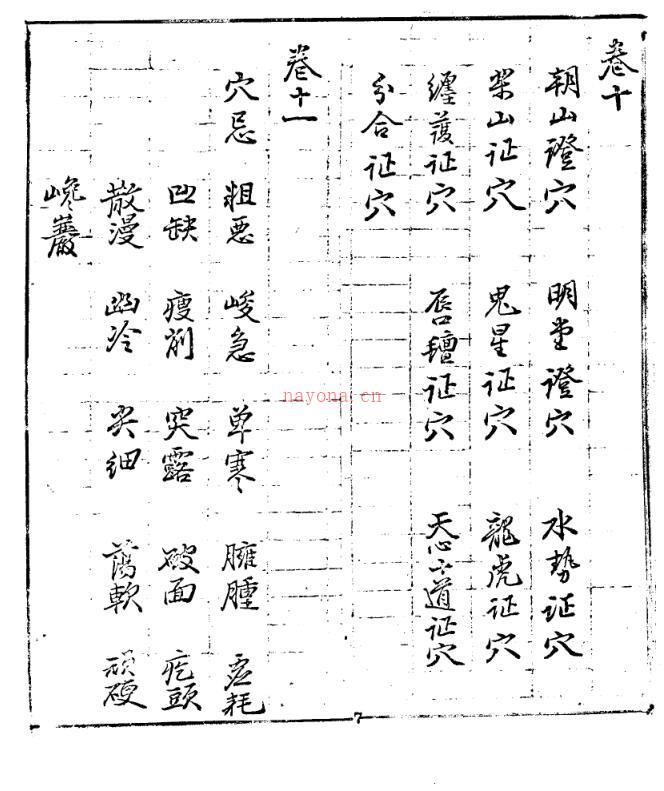 卷十
朝山證穴 明堂證穴 水勢证穴
案山证穴 鬼星证穴 龍虎证穴
纏護证穴 唇氊证穴 天心十道证穴
分合证穴
卷十一
穴忌 粗恶 峻急 单寒 臃腫 虚耗
凹缺 瘦削 突露 破面 疙頭
散漫 幽冷 尖细 蕩軟 頑硬
巉巖
7
nayona.cn